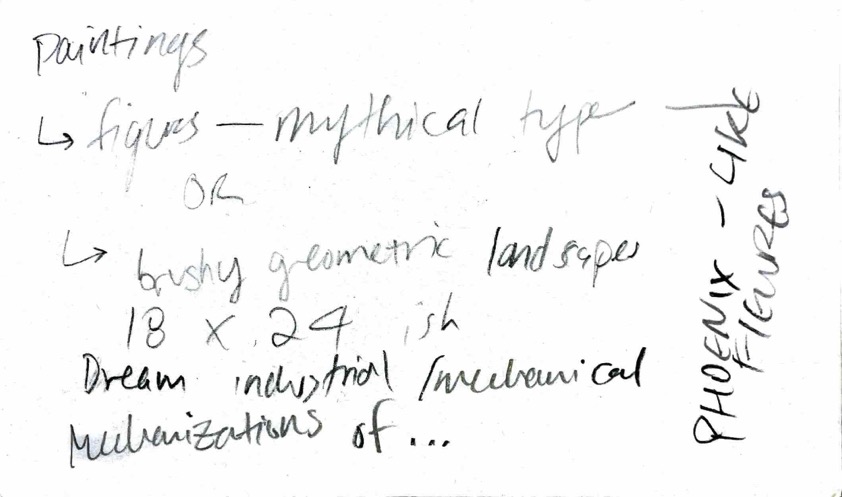 Paintings
↳ figures — mythical type —
OR
↳ brushy geometric landscapes
18 x 24 ish
Dream industrial / mechanical
Mechanizations of ...
PHOENIX - LIKE
FIGURES